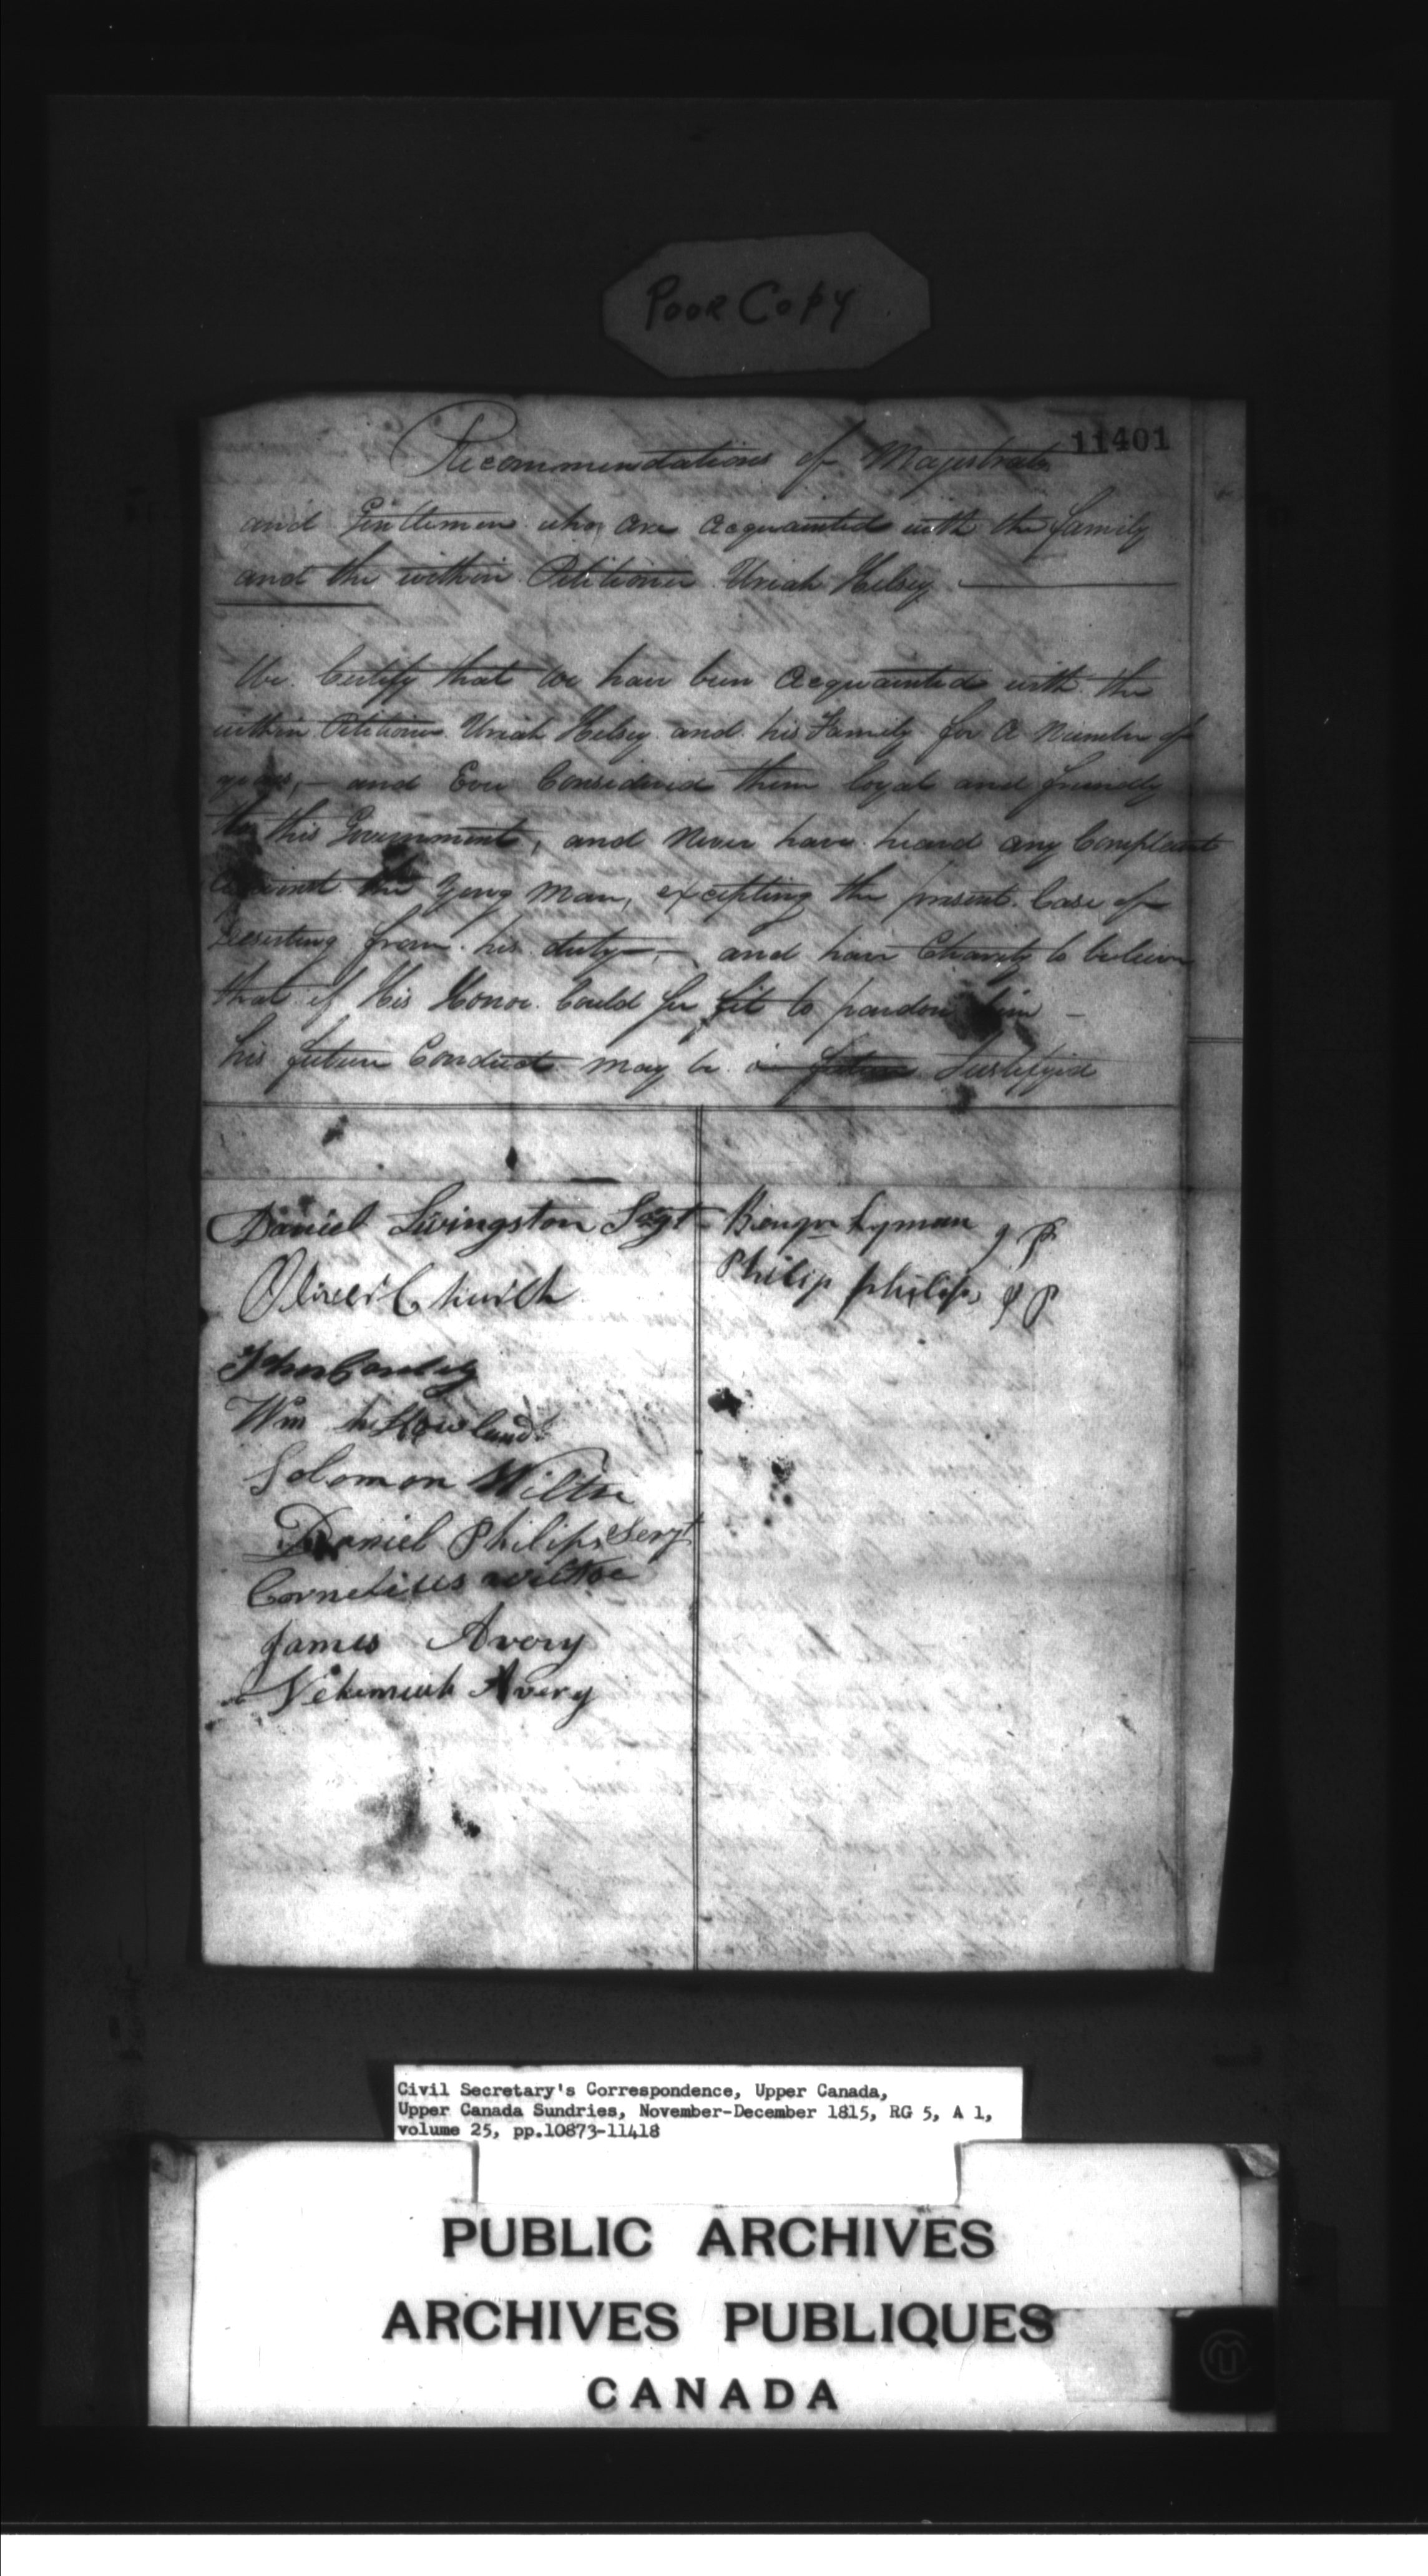 Poor Copy
11401
Recommendations of Magistrates
and Gentlemen who are acquainted with the family
and the within Petitioner Uriah Kelsey
We Certify that We have been Acquainted with the
within Petitioner Uriah Kelsey and his Family for a Number of
years, – and Ever Considered them loyal and friendly
to this Government, and Never have heard any Complaint
against the Young Man, excepting the present Case of
Deserting from his duty, – and have Charity to believe
that if His Honor Could see fit to pardon him –
his future Conduct may be
Daniel Livingston Sergt
Oliver Church
Wm Howland
Solomon Wiltse
Daniel Philips Sergt
Cornelius Wiltse
James Avery
Nehemiah Avery
Lyman J P
Philip philips J P
Civil Secretary's Correspondence, Upper Canada,
Upper Canada Sundries, November-December 1815, RG 5, A 1,
volume 25, pp.10873-11418
PUBLIC ARCHIVES
ARCHIVES PUBLIQUES
CANADA